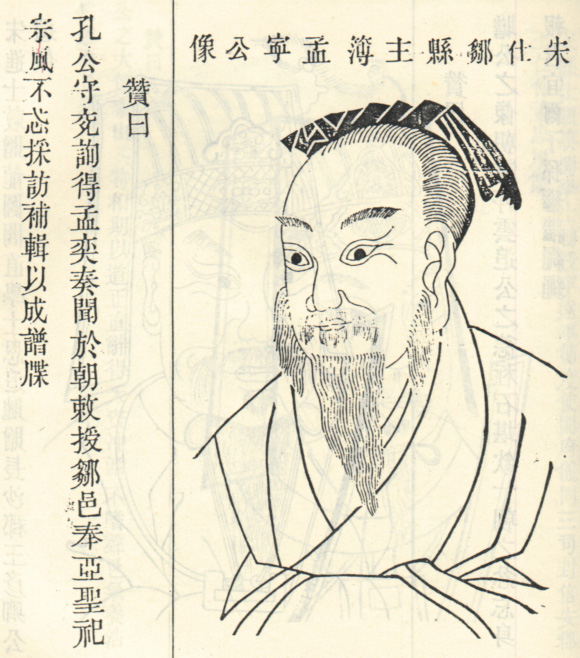 朱仕鄒縣主簿孟寧公像
贊曰
孔公守兗詢得孟奕奏聞於朝敕授鄒邑奉亞聖祀
宗風不忘採訪補輯以成譜牒